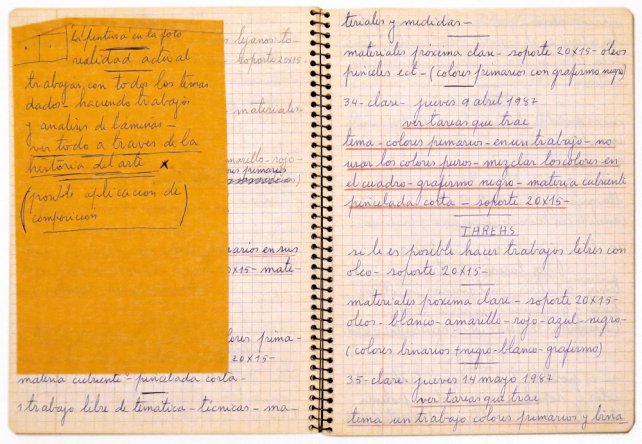 la pintura en la foto
realidad actual
trabajar con todos los temas
dados - haciendo trabajos
y analisis de laminas -
ver todo a traves de la
historia del arte x
(posible aplicacion de
composicion)
lejanos to-
soporte 20x15-
materiales
marillo - rojo -
primarios
narios en sus
0x15 - mate-
lores prima-
20x15-
materia cubriente - pincelada corta -
1 trabajo libre de tematica - tecnicas - ma-
teriales y medidas -
materiales próxima clase - soporte 20x15 - óleos
pinceles ect - (colores primarios con grafismo negro)
34 - clase - jueves 9 abril 1987
ver tareas que trae
tema - colores primarios - en un trabajo - no
usar los colores puros - mezclar los colores en
el cuadro - grafismo negro - materia cubriente
pincelada corta - soporte 20x15 -
TAREAS
si le es posible hacer trabajos libres con
óleo - soporte 20x15 -
materiales próxima clase - soporte 20x15 -
óleos - blanco - amarillo - rojo - azul - negro -
(colores binarios + negro - blanco - grafismo)
35 - clase - jueves 14 mayo 1987
ver tareas que trae
tema un trabajo colores primarios y bina